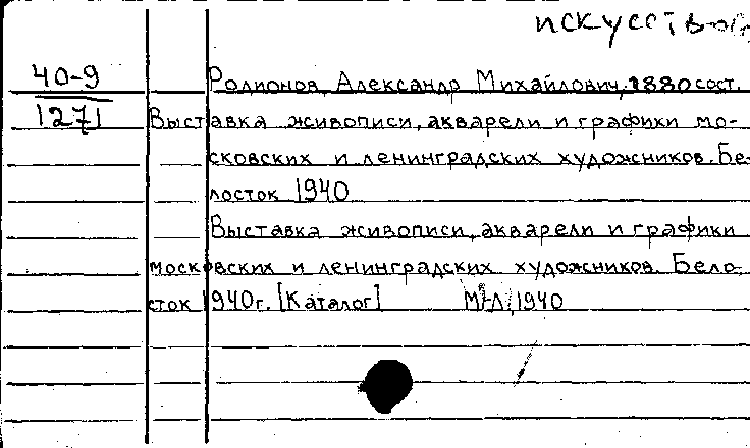 искусство
40-9
1271
Родионов, Александр Михайлович, 1880 сост.
Выставка живописи, акварели и графики мо-
сковских и ленинградских художников. Бе-
лосток 1940
Выставка живописи, акварели и графики
московских и ленинградских художников. Бело-
сток 1940г. [Каталог] М-Л, 1940